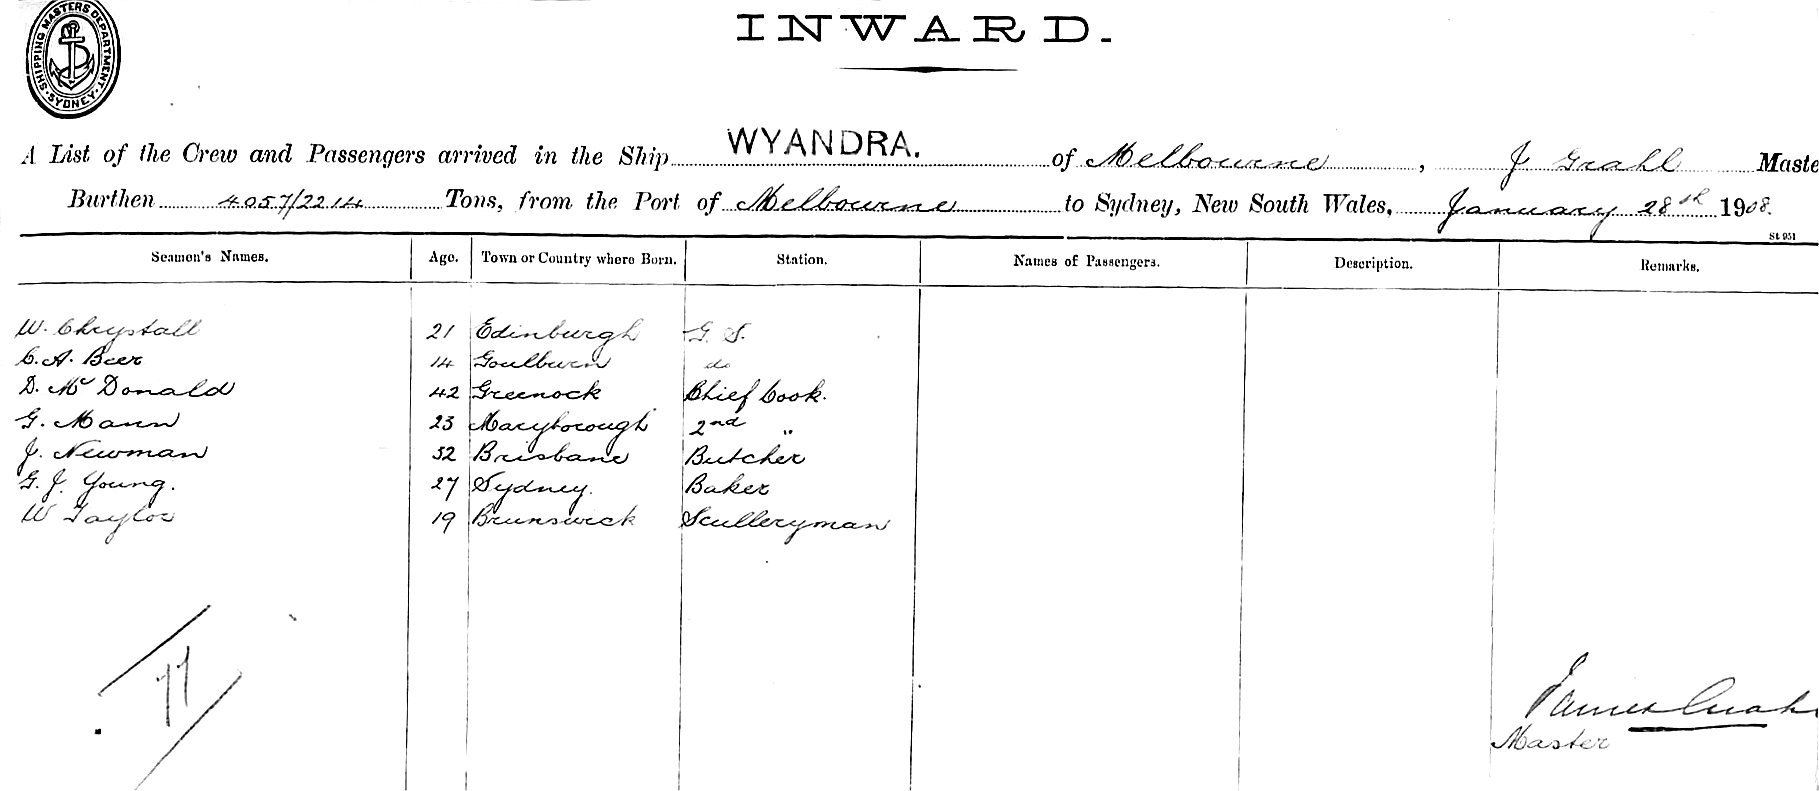 SHIPPING MASTERS DEPARTMENT
SYDNEY
INWARD.
A List of the Crew and Passengers arrived in the Ship WYANDRA. of Melbourne, J Grahl Maste
Burthen 4057/2214 Tons, from the Port of Melbourne to Sydney, New South Wales, January 28th 1908.
St 951
Seamen's Names. Age. Town or Country where Born. Station. Names of Passengers. Description. Remarks.
W. Chrystall 21 Edinburgh G. S.
C. A. Beer 14 Goulburn do
D. McDonald 42 Greenock Chief Cook.
G. Mann 23 Maryborough 2nd "
J. Newman 32 Brisbane Butcher
G. J. Young. 27 Sydney. Baker
W Taylor 19 Brunswick Sculleryman
James
Master